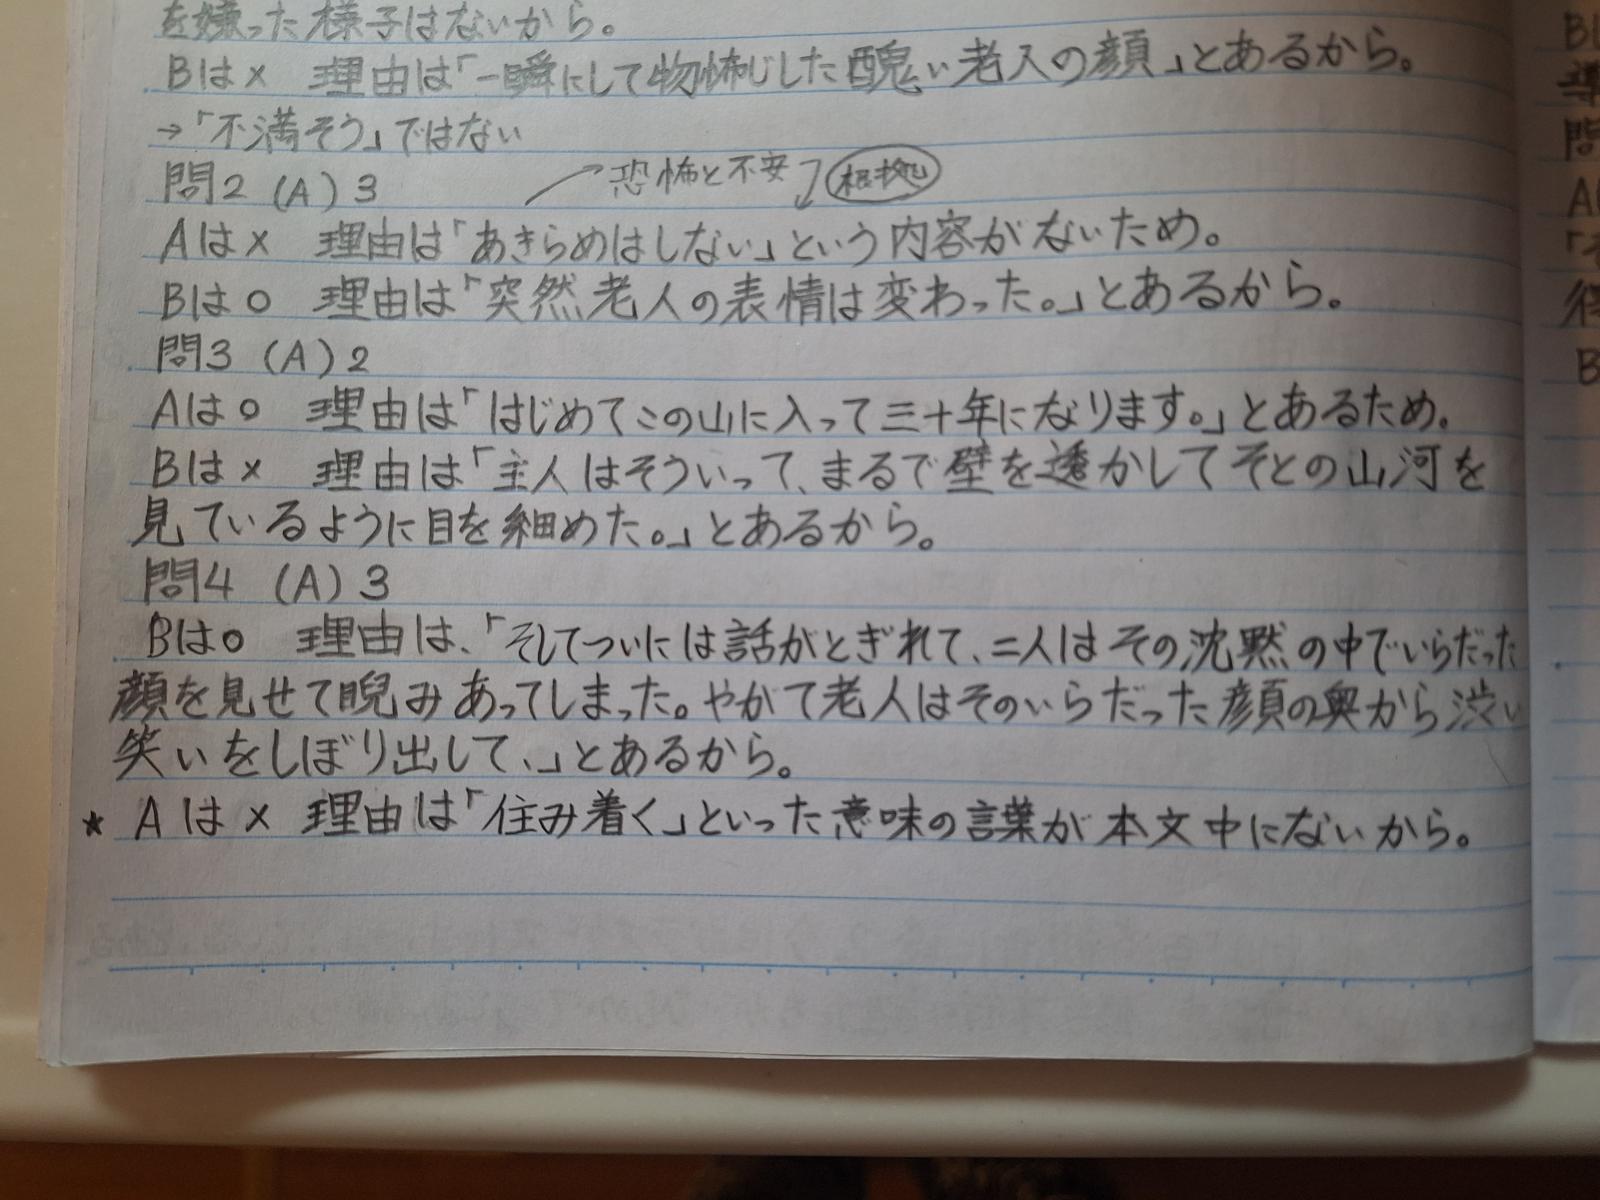 を嫌った様子はないから。
Bは× 理由は「一瞬にして物怖じした醜い老人の顔」とあるから。
→「不満そう」ではない
問2 (A) 3
恐怖と不安 根拠
Aは× 理由は「あきらめはしない」という内容がないため。
Bは○ 理由は「突然老人の表情は変わった。」とあるから。
問3 (A) 2
Aは○ 理由は「はじめてこの山に入って三十年になります。」とあるため。
Bは× 理由は「主人はそういって、まるで壁を透かしてそとの山河を
見ているように目を細めた。」とあるから。
問4 (A) 3
Bは○ 理由は、「そしてついには話がとぎれて、二人はその沈黙の中でいらだった
顔を見せて睨みあってしまった。やがて老人はそのいらだった顔の奥から渋い
笑いをしぼり出して、」とあるから。
★ Aは× 理由は「住み着く」といった意味の言葉が本文中にないから。
B
導
問
A
「そ
得
B